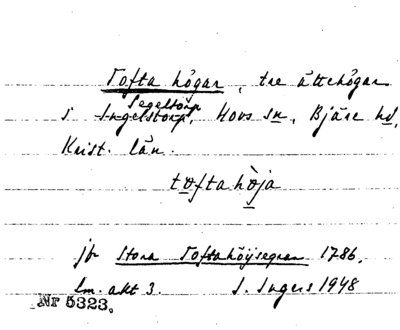 Tofta högar, tre ättehögar
Segeltorp
i Ingelstorp, Hovs sn, Bjäre hd,
Krist. län.
tofta höja
jfr Stora Toftahöijsegran 1786,
lm. akt 3. S. Ingers 1948
Nr 5323.